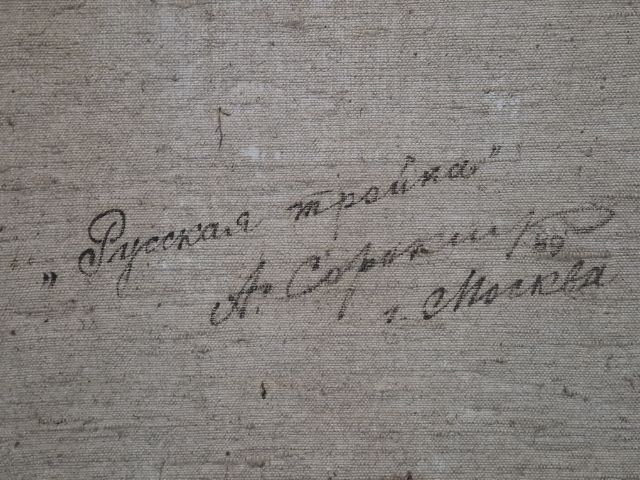 „Русская тройка"
А. Сорокин 49
г. Москва